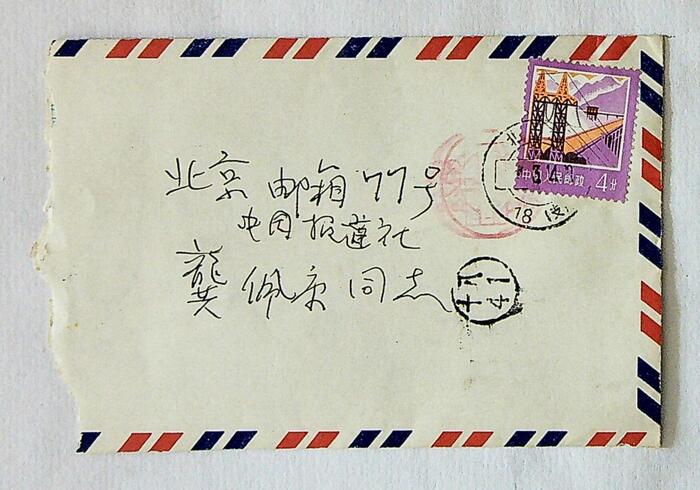 北京 邮箱 77号
中国报道社
龔佩康同志
中国人民邮政 4分
78